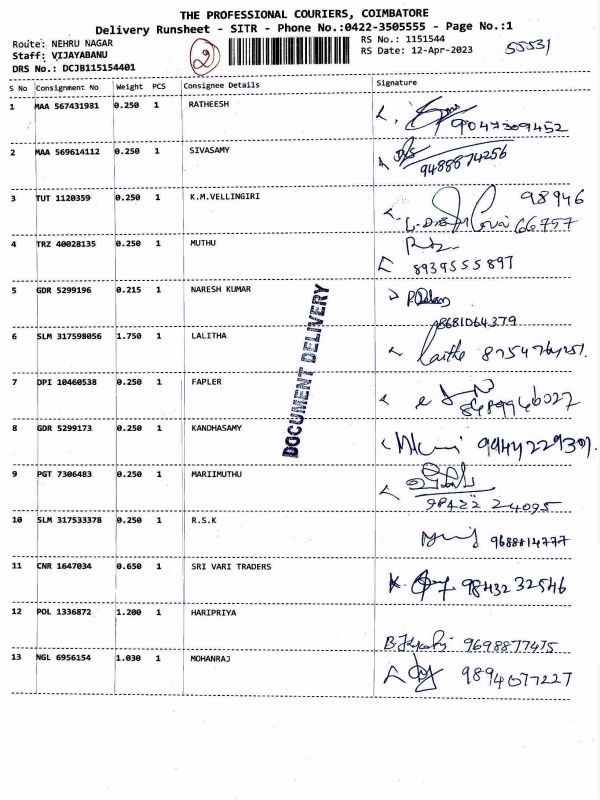 THE PROFESSIONAL COURIERS, COIMBATORE
Delivery Runsheet - SITR - Phone No.:0422-3505555 - Page No.:1
Route: NEHRU NAGAR
Staff: VIJAYABANU
DRS No.: DCJB115154401
2
RS No.: 1151544
RS Date: 12-Apr-2023
55531
S No Consignment No Weight PCS Consignee Details Signature
1 MAA 567431981 0.250 1 RATHEESH
9047309452
2 MAA 569614112 0.250 1 SIVASAMY
9488874256
3 TUT 1120359 0.250 1 K.M.VELLINGIRI 98946
66757
4 TRZ 40028135 0.250 1 MUTHU
8939555897
5 GDR 5299196 0.215 1 NARESH KUMAR
8681064379
6 SLM 317598056 1.750 1 LALITHA
7 DPI 10460538 0.250 1 FAPLER
8489946027
8 GDR 5299173 0.250 1 KANDHASAMY
9944229301
9 PGT 7306483 0.250 1 MARIIMUTHU
98422 24095
10 SLM 317533378 0.250 1 R.S.K
9688814777
11 CNR 1647034 0.650 1 SRI VARI TRADERS
98432 32546
12 POL 1336872 1.200 1 HARIPRIYA
9698877475
13 NGL 6956154 1.030 1 MOHANRAJ
9894077227
DOCUMENT DELIVERY